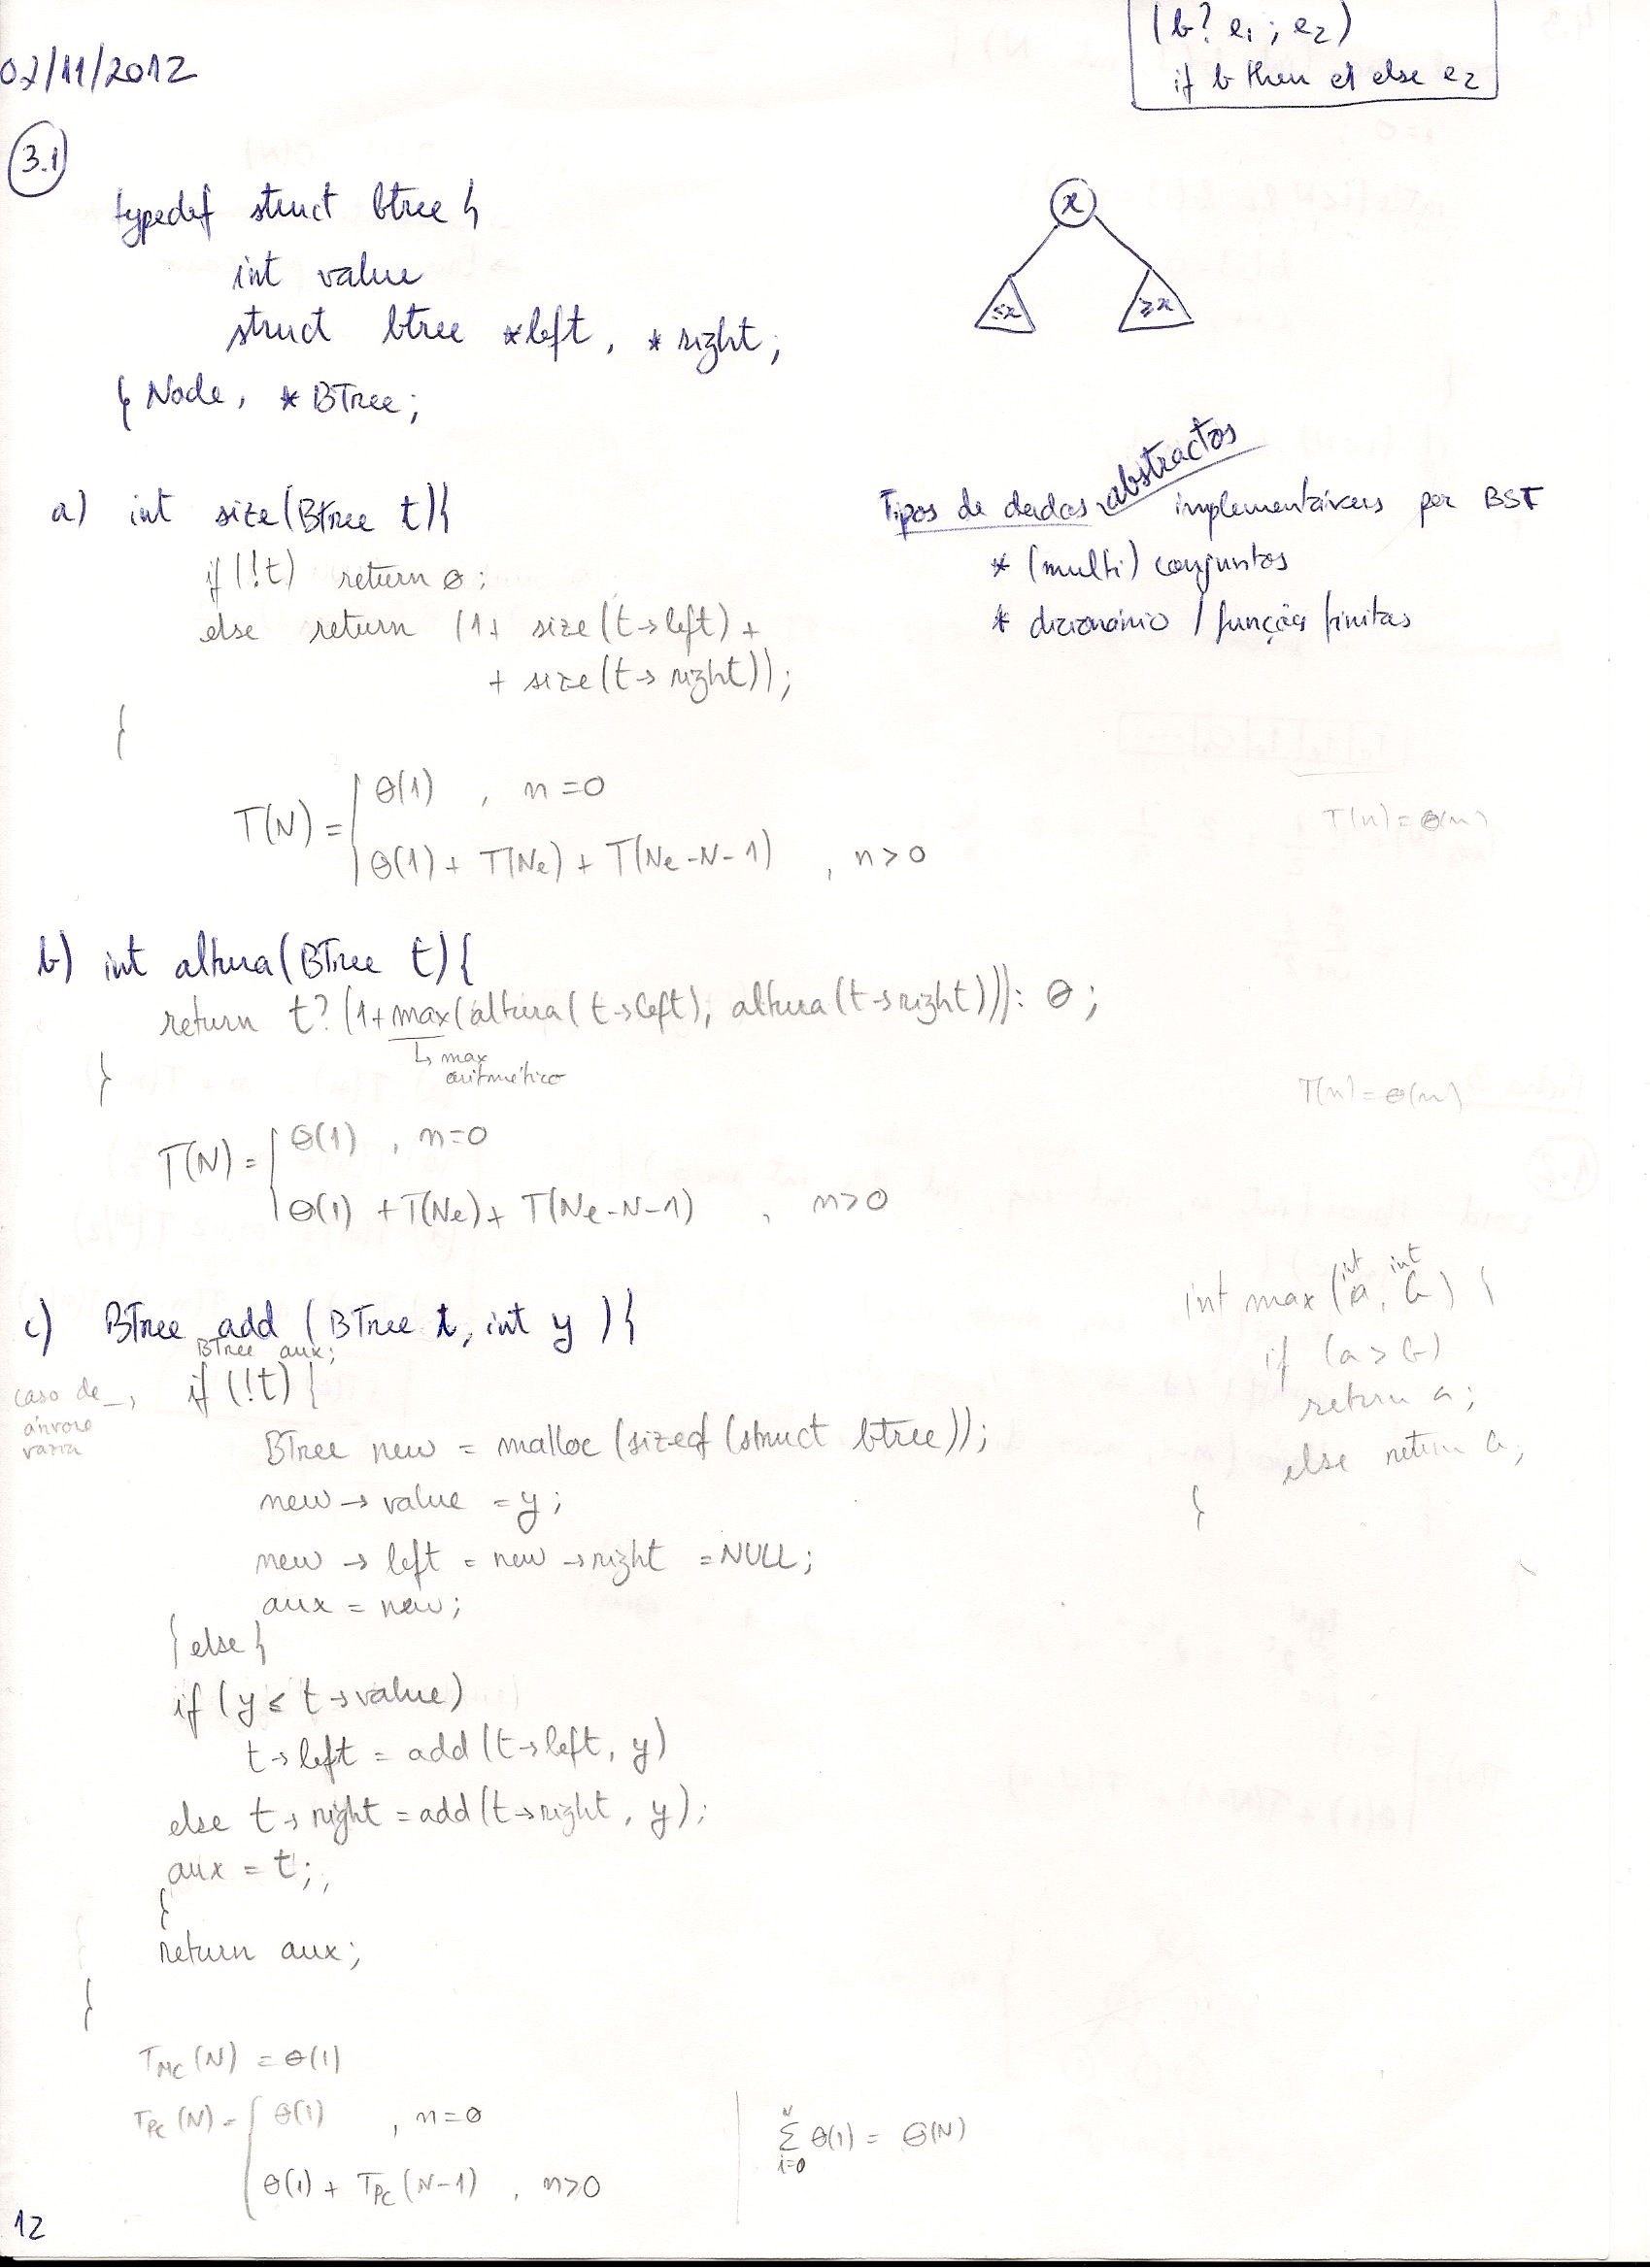 (b? e1 ; e2)
if b then e1 else e2
07/11/2012
3.1
typedef struct btree {
int value
struct btree *left, *right;
} Node, *BTree;
x
≤x
≥x
a) int size(BTree t){
if(!t) return 0;
else return (1+ size(t→left) +
+ size(t→right));
}
Tipos de dados abstractos implementáveis por BST
* (multi) conjuntos
* dicionário / funções finitas
T(N) = { Θ(1) , n=0
Θ(1) + T(Ne) + T(Ne-N-1) , n>0
T(n) = Θ(n)
b) int altura(BTree t){
return t? (1+max(altura(t→left), altura(t→right))): 0;
↳ max
aritmético
}
T(n) = Θ(n)
T(N) = { Θ(1) , n=0
Θ(1) + T(Ne) + T(Ne-N-1) , n>0
c) BTree add (BTree t, int y){
BTree aux;
caso de → if (!t) {
árvore
vazia
BTree new = malloc (sizeof (struct btree));
new → value = y;
new → left = new → right = NULL;
aux = new;
} else {
if (y ≤ t→value)
t→left = add(t→left, y)
else t→right = add(t→right, y);
aux = t;
}
return aux;
}
int max(int a, int b) {
if (a > b)
return a;
else return b;
}
TMC(N) = Θ(1)
TPC(N) = { Θ(1) , n=0
Θ(1) + TPC(N-1) , n>0
N
Σ Θ(1) = Θ(N)
i=0
12